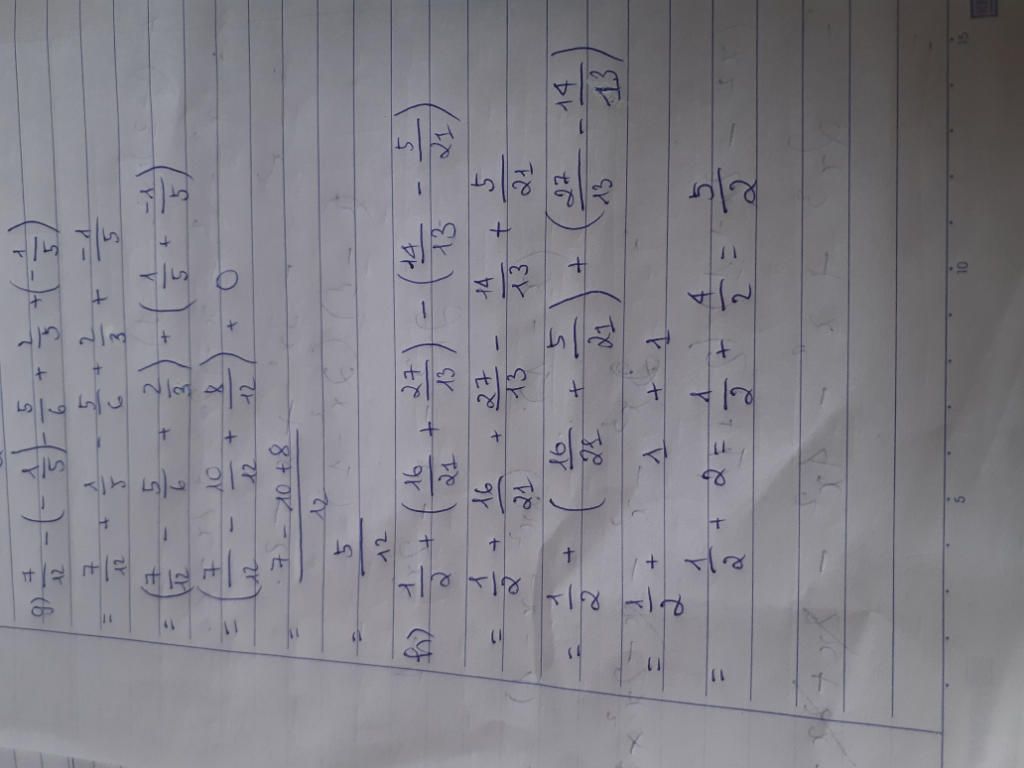 g) 7/12 - (- 1/5) - 5/6 + 2/3 + (- 1/5)
= 7/12 + 1/5 - 5/6 + 2/3 + -1/5
= (7/12 - 5/6 + 2/3) + (1/5 + -1/5)
= (7/12 - 10/12 + 8/12) + 0
= 7 - 10 + 8/12
= 5/12
h) 1/2 + (16/21 + 27/13) - (14/13 - 5/21)
= 1/2 + 16/21 + 27/13 - 14/13 + 5/21
= 1/2 + (16/21 + 5/21) + (27/13 - 14/13)
= 1/2 + 1 + 1
= 1/2 + 2 = 1/2 + 4/2 = 5/2
5 10 15